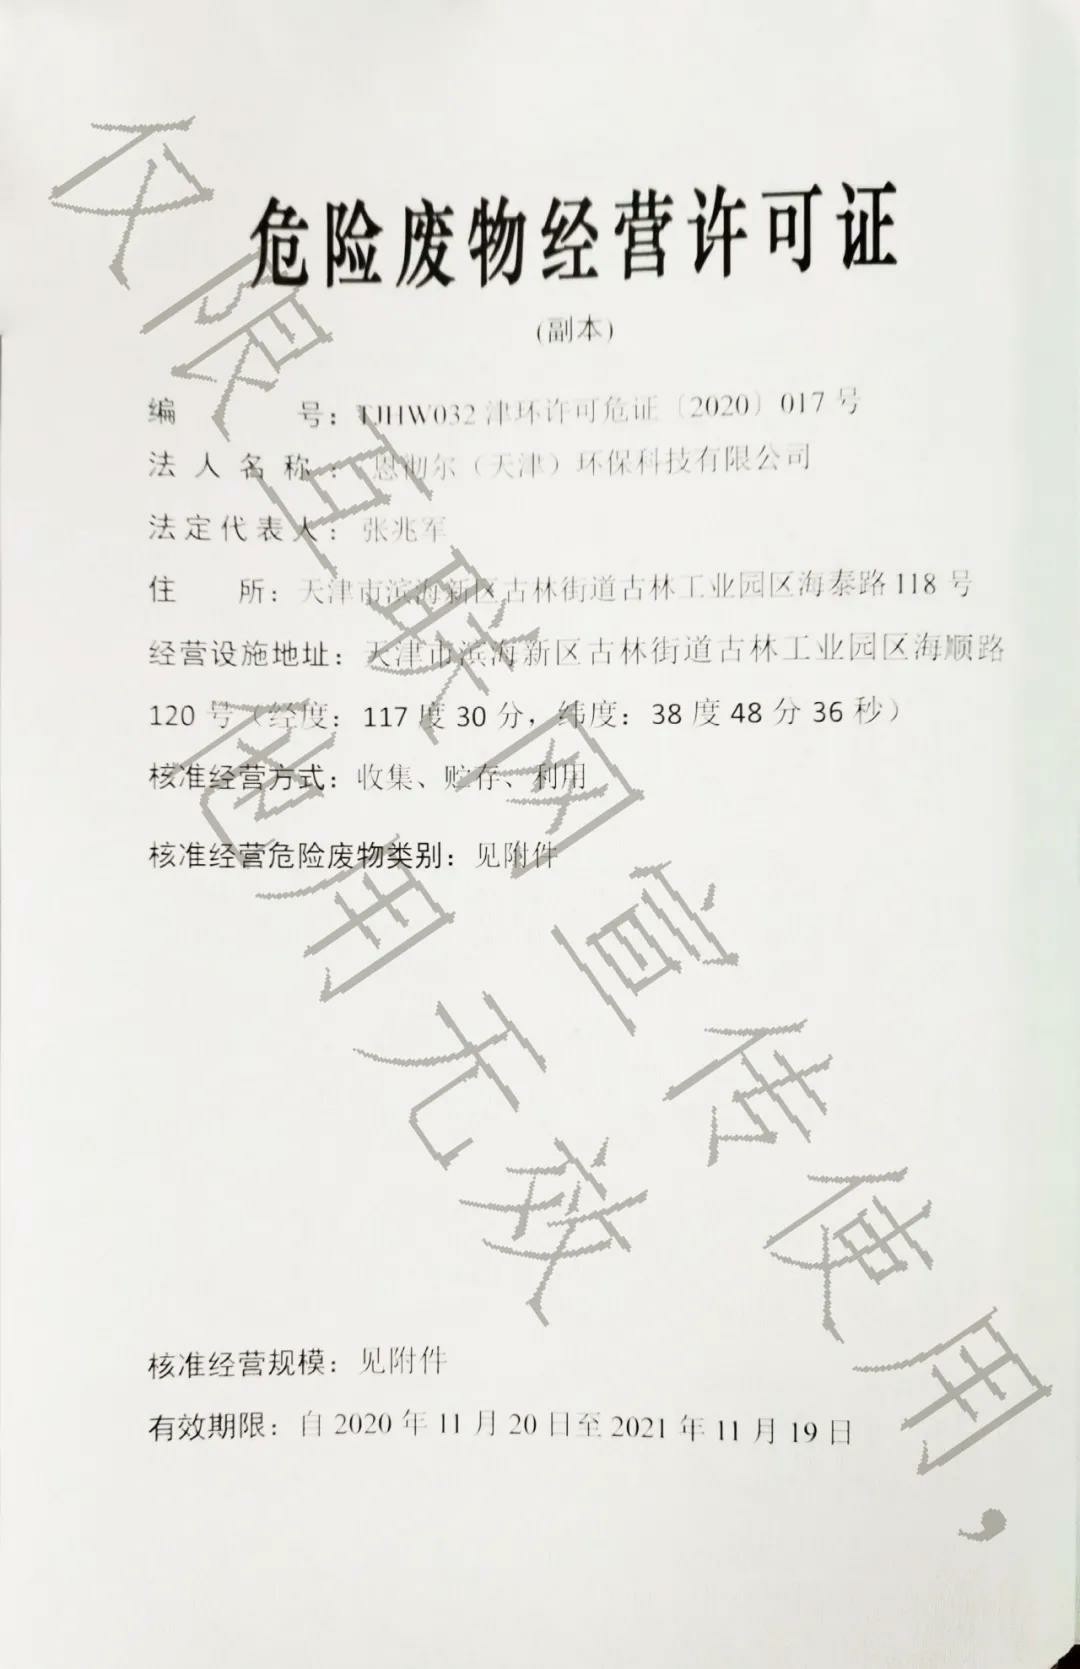 危险废物经营许可证
(副本)
编 号：TJHW032 津环许可危证〔2020〕017 号
法人名称：恩彻尔（天津）环保科技有限公司
法定代表人：张兆军
住 所：天津市滨海新区古林街道古林工业园区海泰路 118 号
经营设施地址：天津市滨海新区古林街道古林工业园区海顺路
120 号（经度：117 度 30 分，纬度：38 度 48 分 36 秒）
核准经营方式：收集、贮存、利用
核准经营危险废物类别：见附件
核准经营规模：见附件
有效期限：自 2020 年 11 月 20 日至 2021 年 11 月 19 日
仅限互联网宣传使用，
他用无效